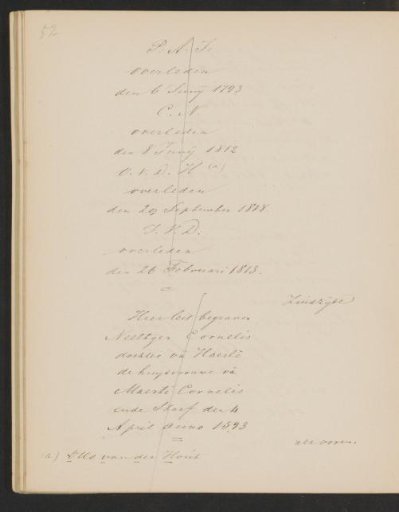 52
P. N. T.
overleden
den 6 Junij 1793
C. N
overleden
den 8 Junij 1812
O. V. D. H (a)
overleden
den 29 September 1818.
J. V. D.
overleden
den 26 Februari 1813.
Zuidzyde
Hier leit begraven
Neeltgen Cornelis
dochter vā
de huysvrouwe vā
Maerti Cornelis
ende Sterf den 4
April Anno 1593
als voren.
(a) van der Hout